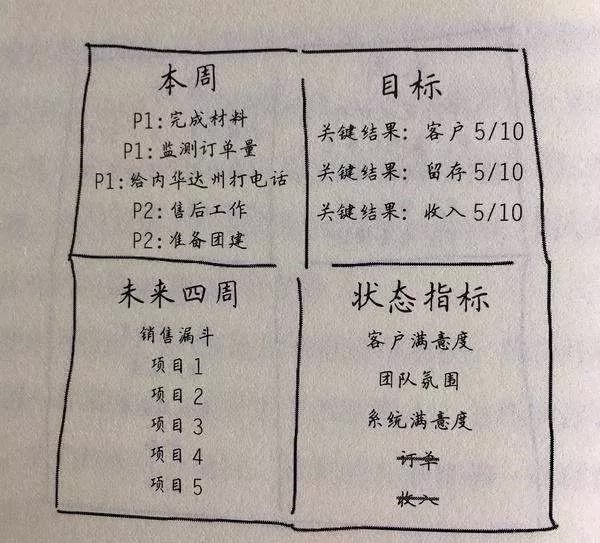 本周
P1:完成材料
P1:监测订单量
P1:给内华达州打电话
P2:售后工作
P2:准备团建
目标
关键结果: 客户 5/10
关键结果: 留存 5/10
关键结果: 收入 5/10
未来四周
销售漏斗
项目 1
项目 2
项目 3
项目 4
项目 5
状态指标
客户满意度
团队氛围
系统满意度
订单
收入